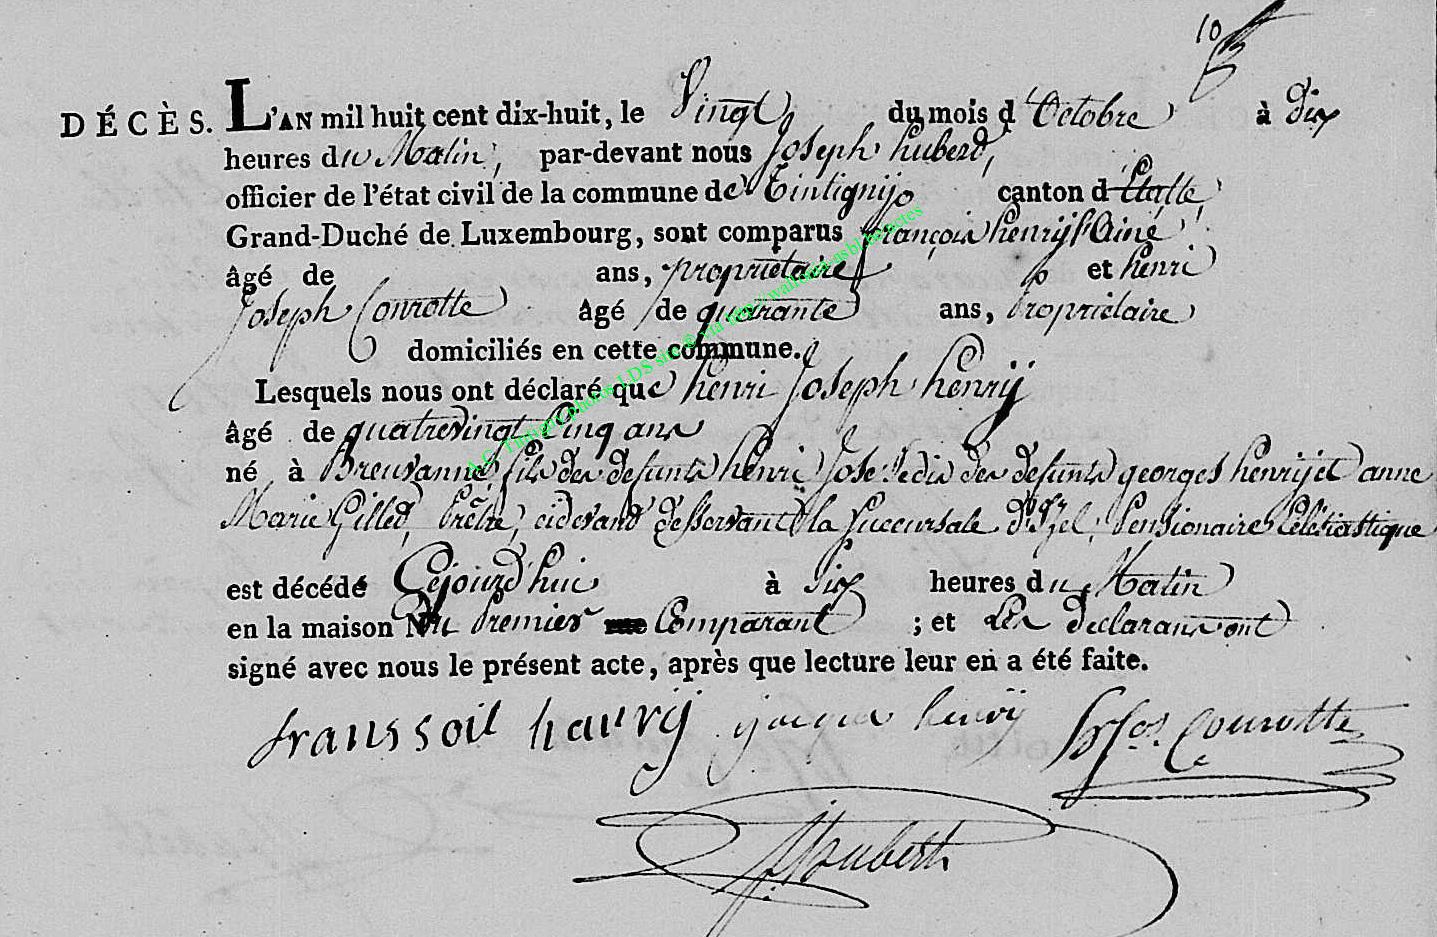 10
DÉCÈS. L'AN mil huit cent dix-huit, le Vingt du mois d'Octobre à Dix
heures du Matin, par-devant nous Joseph hubert,
officier de l'état civil de la commune de Tintignij canton d'Etalle,
Grand-Duché de Luxembourg, sont comparus françois henrij l'Ainé
âgé de ans, propriétaire et henri
Joseph Conrotte âgé de quarante ans, Propriétaire
domiciliés en cette commune.
Lesquels nous ont déclaré que henri Joseph henrij
âgé de quatrevingt Cinq ans
né à Breuvanne, fils des defunts henri Jose: Ledis des defunts georges henrij et anne
Marie Gilles, Prêtre, cidevant desservant la succursale d'Izel, Pensionaire
est décédé Cejourd'hui à Six heures du Matin
en la maison Du Premier Comparant ; et Les Declarans ont
signé avec nous le présent acte, après que lecture leur en a été faite.
franssoit haurij henrij Conrotte
JHubert
A.C. Tintigny photos LDS site © via http://wallonia-asbl.be/actes